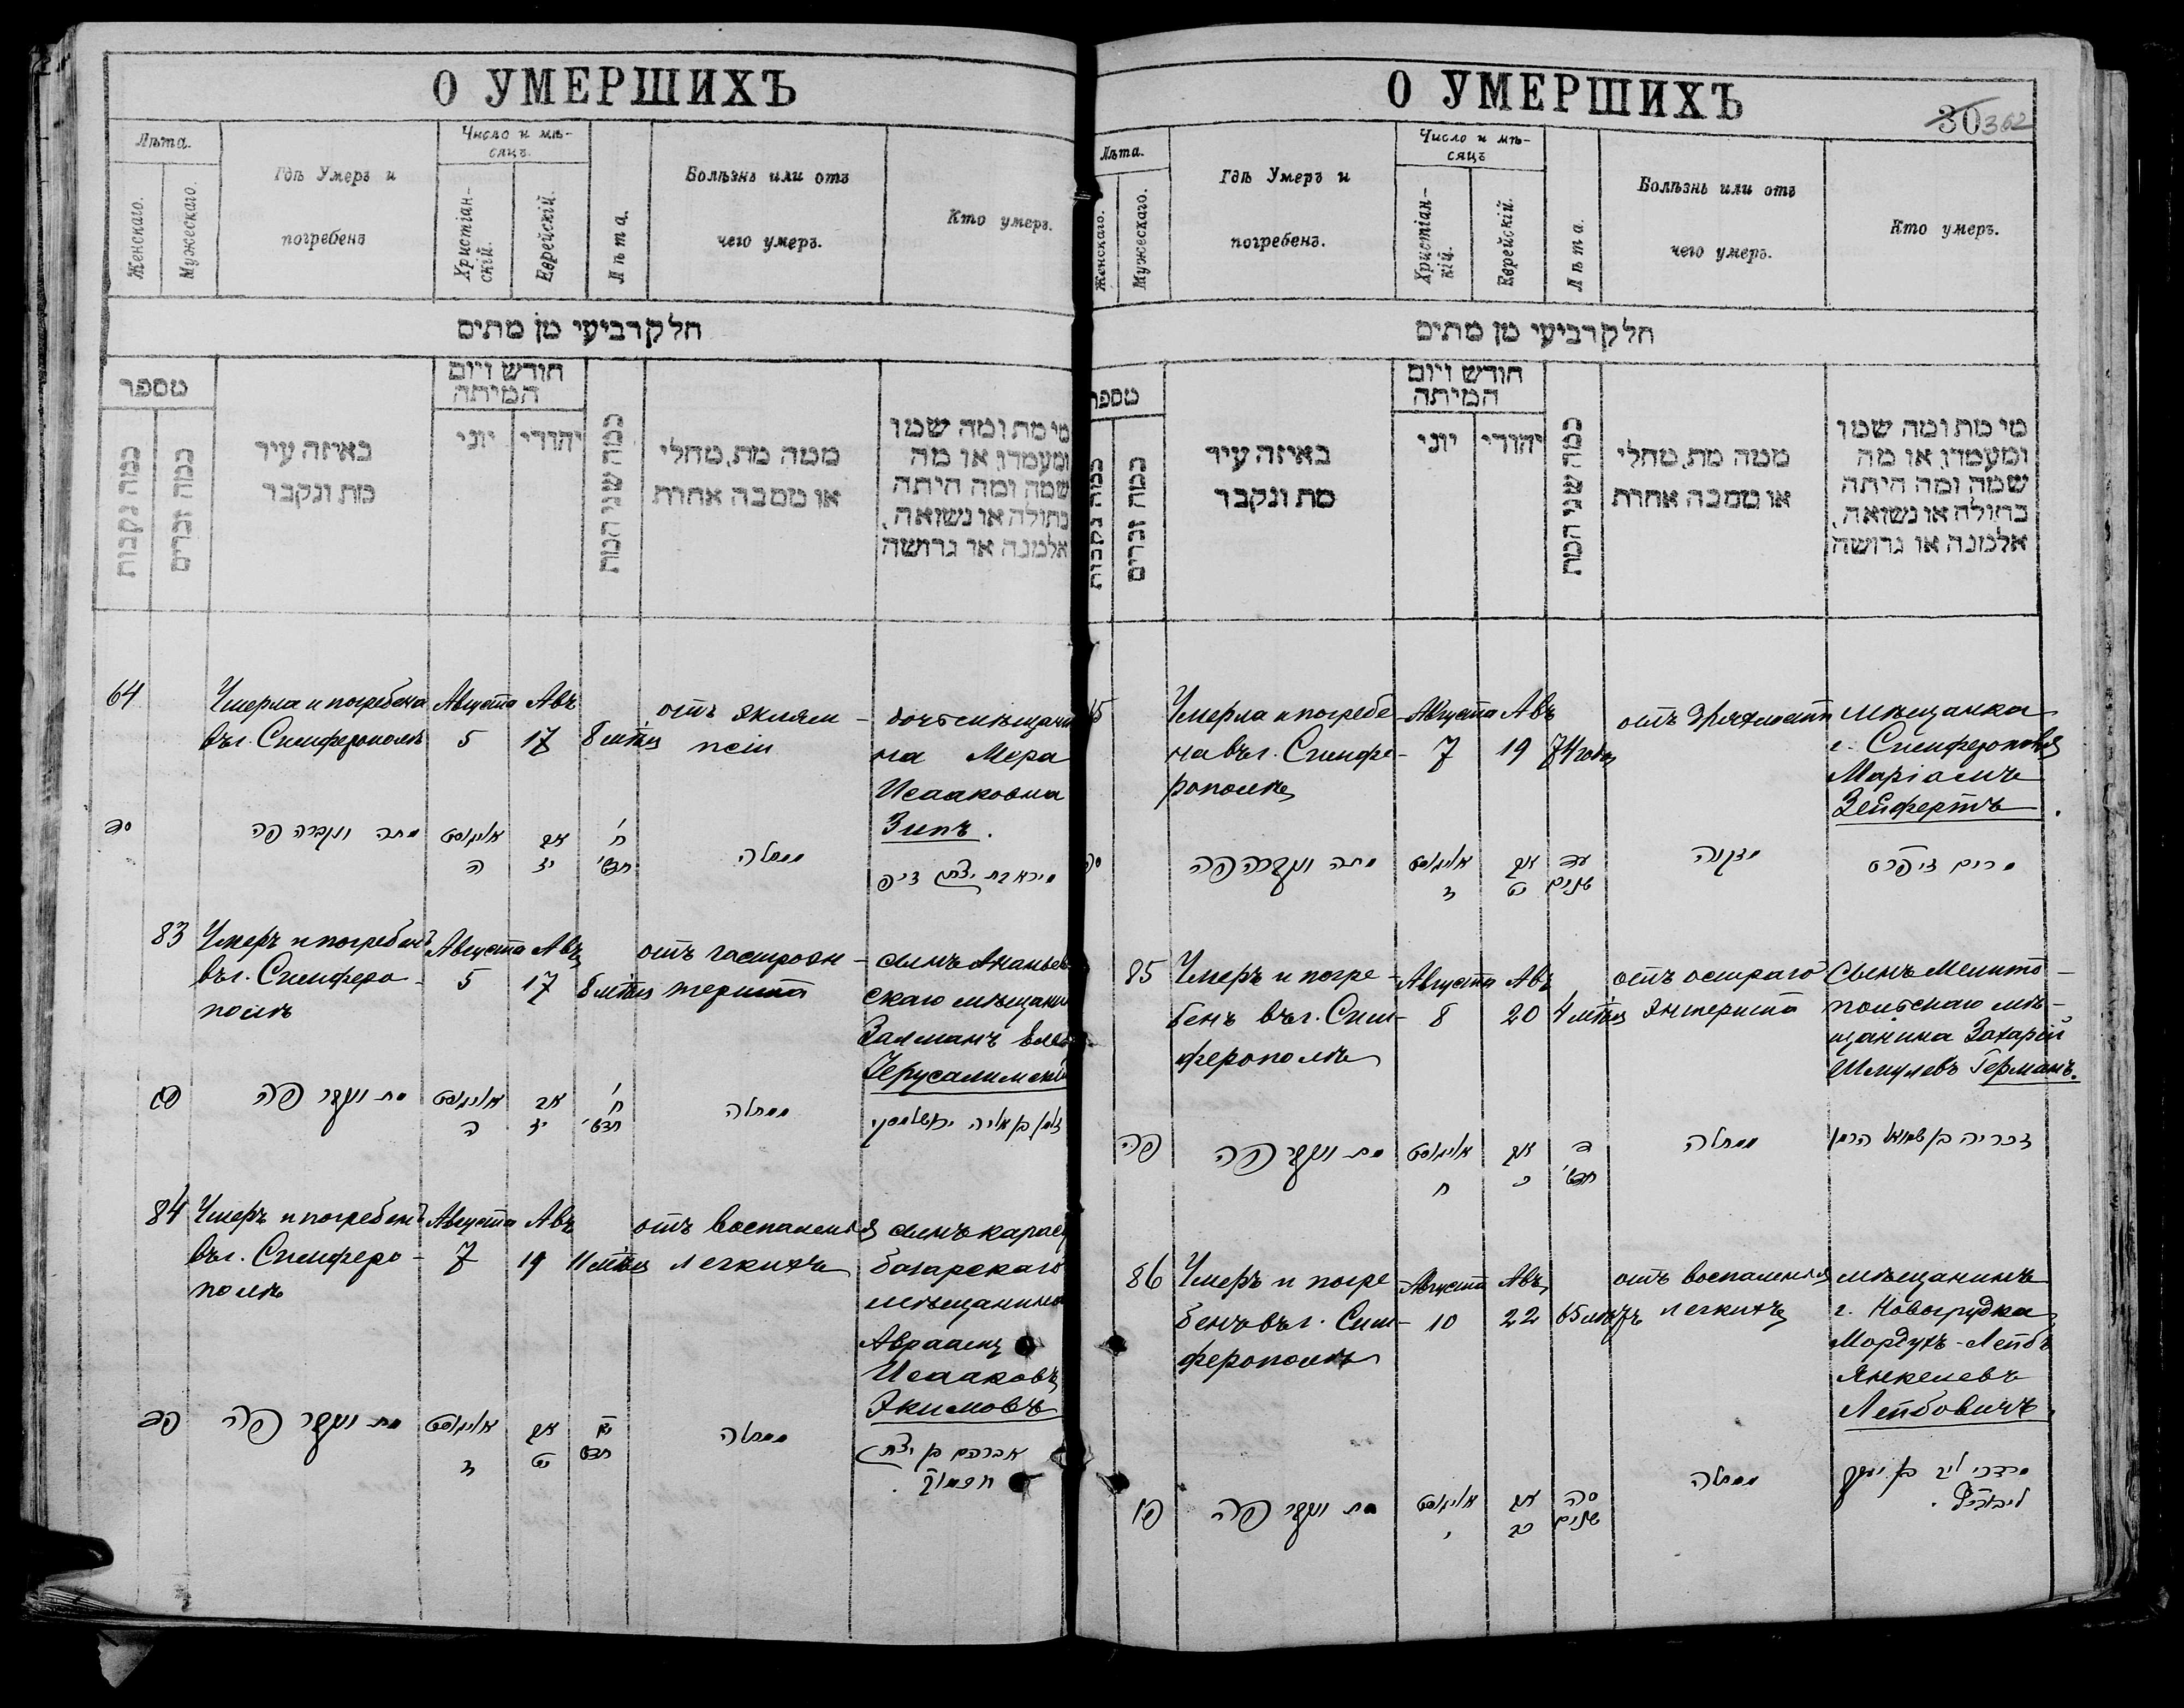 О УМЕРШИХЪ
Лѣта.
Женскаго.
Мужескаго.
Гдѣ Умеръ и
погребенъ
Число и мѣ-
сяцъ.
Христіан-
скій.
Еврейскій.
Лѣта.
Болѣзнь или отъ
чего умеръ.
Кто умеръ.
חלק רביעי מן מתים
מספר
כמה נקבות
כמה זכרים
באיזה עיר
מת ונקבר
חודש ויום
המיתה
יוני
יהודי
כמה שני המת
ממה מת, מחלי
או מסבה אחרת
מי מת ומה שמו
ומעמדו, או מה
שמה ומה היתה
בתולה או נשואה,
אלמנה או גרושה
64
Умерла и погребена
въ г. Симферополѣ
Августа
5
Авъ
17
8 мѣц
отъ эклям-
псіи
дочь мѣщани
на Мера
Исааковна
Зипъ.
סד
מתה ונקברה פה
אויגוסט
ה
אב
יז
ח'
חדש'
ממחלה
83
Умеръ и погребенъ
въ г. Симферо-
полѣ
Августа
5
Авъ
17
8 мѣц
отъ гастроэн-
терита
сынъ Ананьев
скаго мѣщани
Залманъ
Іерусалимскі
מת ונקבר פה
אויגוסט
ה
אב
יז
ח'
חדש'
ממחלה
84
Умеръ и погребенъ
въ г. Симферо-
полѣ
Августа
7
Авъ
19
11 мѣц
отъ воспаленія
легкихъ
сынъ карасу
базарскаго
мѣщанина
Авраамъ
Исааковъ
Якимовъ
פד
מת ונקבר פה
אויגוסט
ז
אב
יט
יא
חדש
ממחלה
אברהם בן יצחק
О УМЕРШИХЪ
30 362
Лѣта.
Женскаго.
Мужескаго.
Гдѣ Умеръ и
погребенъ.
Число и мѣ-
сяцъ
Христіан-
кій.
Еврейскій.
Лѣта.
Болѣзнь или отъ
чего умеръ.
Кто умеръ.
חלק רביעי מן מתים
מספר
כמה נקבות
כמה זכרים
באיזה עיר
מת ונקבר
חודש ויום
המיתה
יוני
יהודי
כמה שני המת
ממה מת, מחלי
או מסבה אחרת
מי מת ומה שמו
ומעמדו, או מה
שמה ומה היתה
בתולה או נשואה,
אלמנה או גרושה
5
Умерла и погребе-
на въ г. Симфе-
рополѣ
Августа
7
Авъ
19
74 года
отъ
мѣщанка
г. Симферополя
Маріамъ
Зейфертъ.
סה
מתה ונקברה פה
אויגוסט
ז
אב
יט
עד
שנים
מזקנה
מרים זייפרט
85
Умеръ и погре-
бенъ въ г. Сим-
ферополѣ
Августа
8
Авъ
20
4 мѣц
отъ остраго
энтерита
Сынъ Мелито-
польскаго мѣ-
щанина Захарій
Шмулевъ Германъ.
פה
מת ונקבר פה
אויגוסט
ח
אב
כ
ד
חדש'
ממחלה
זכריה בן שמואל הרמן
86
Умеръ и погре-
бенъ въ г. Сим-
ферополѣ
Августа
10
Авъ
22
65 лѣтъ
отъ воспаленія
легкихъ
мѣщанинъ
г. Новогрудка
Мордухъ-Лейбъ
Янкелевъ
Лейбовичъ.
פו
מת ונקבר פה
אויגוסט
י
אב
כב
סה
שנים
ממחלה
מרדכי ליב בן יעקב